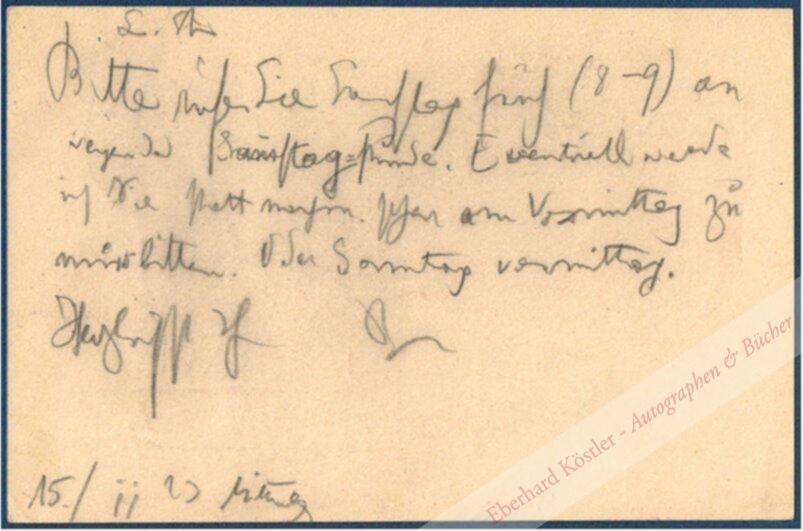 L. Th
Bitte rufen Sie Samstag früh (8-9) an
wegen der Samstag=stunde. Eventuell werde
ich Sie statt schon am Vormittag zu
mir bitten. Oder Sonntag vormittag.
Herzlichst Ihr
15./ II 23
Eberhard Köstler - Autographen & Bücher